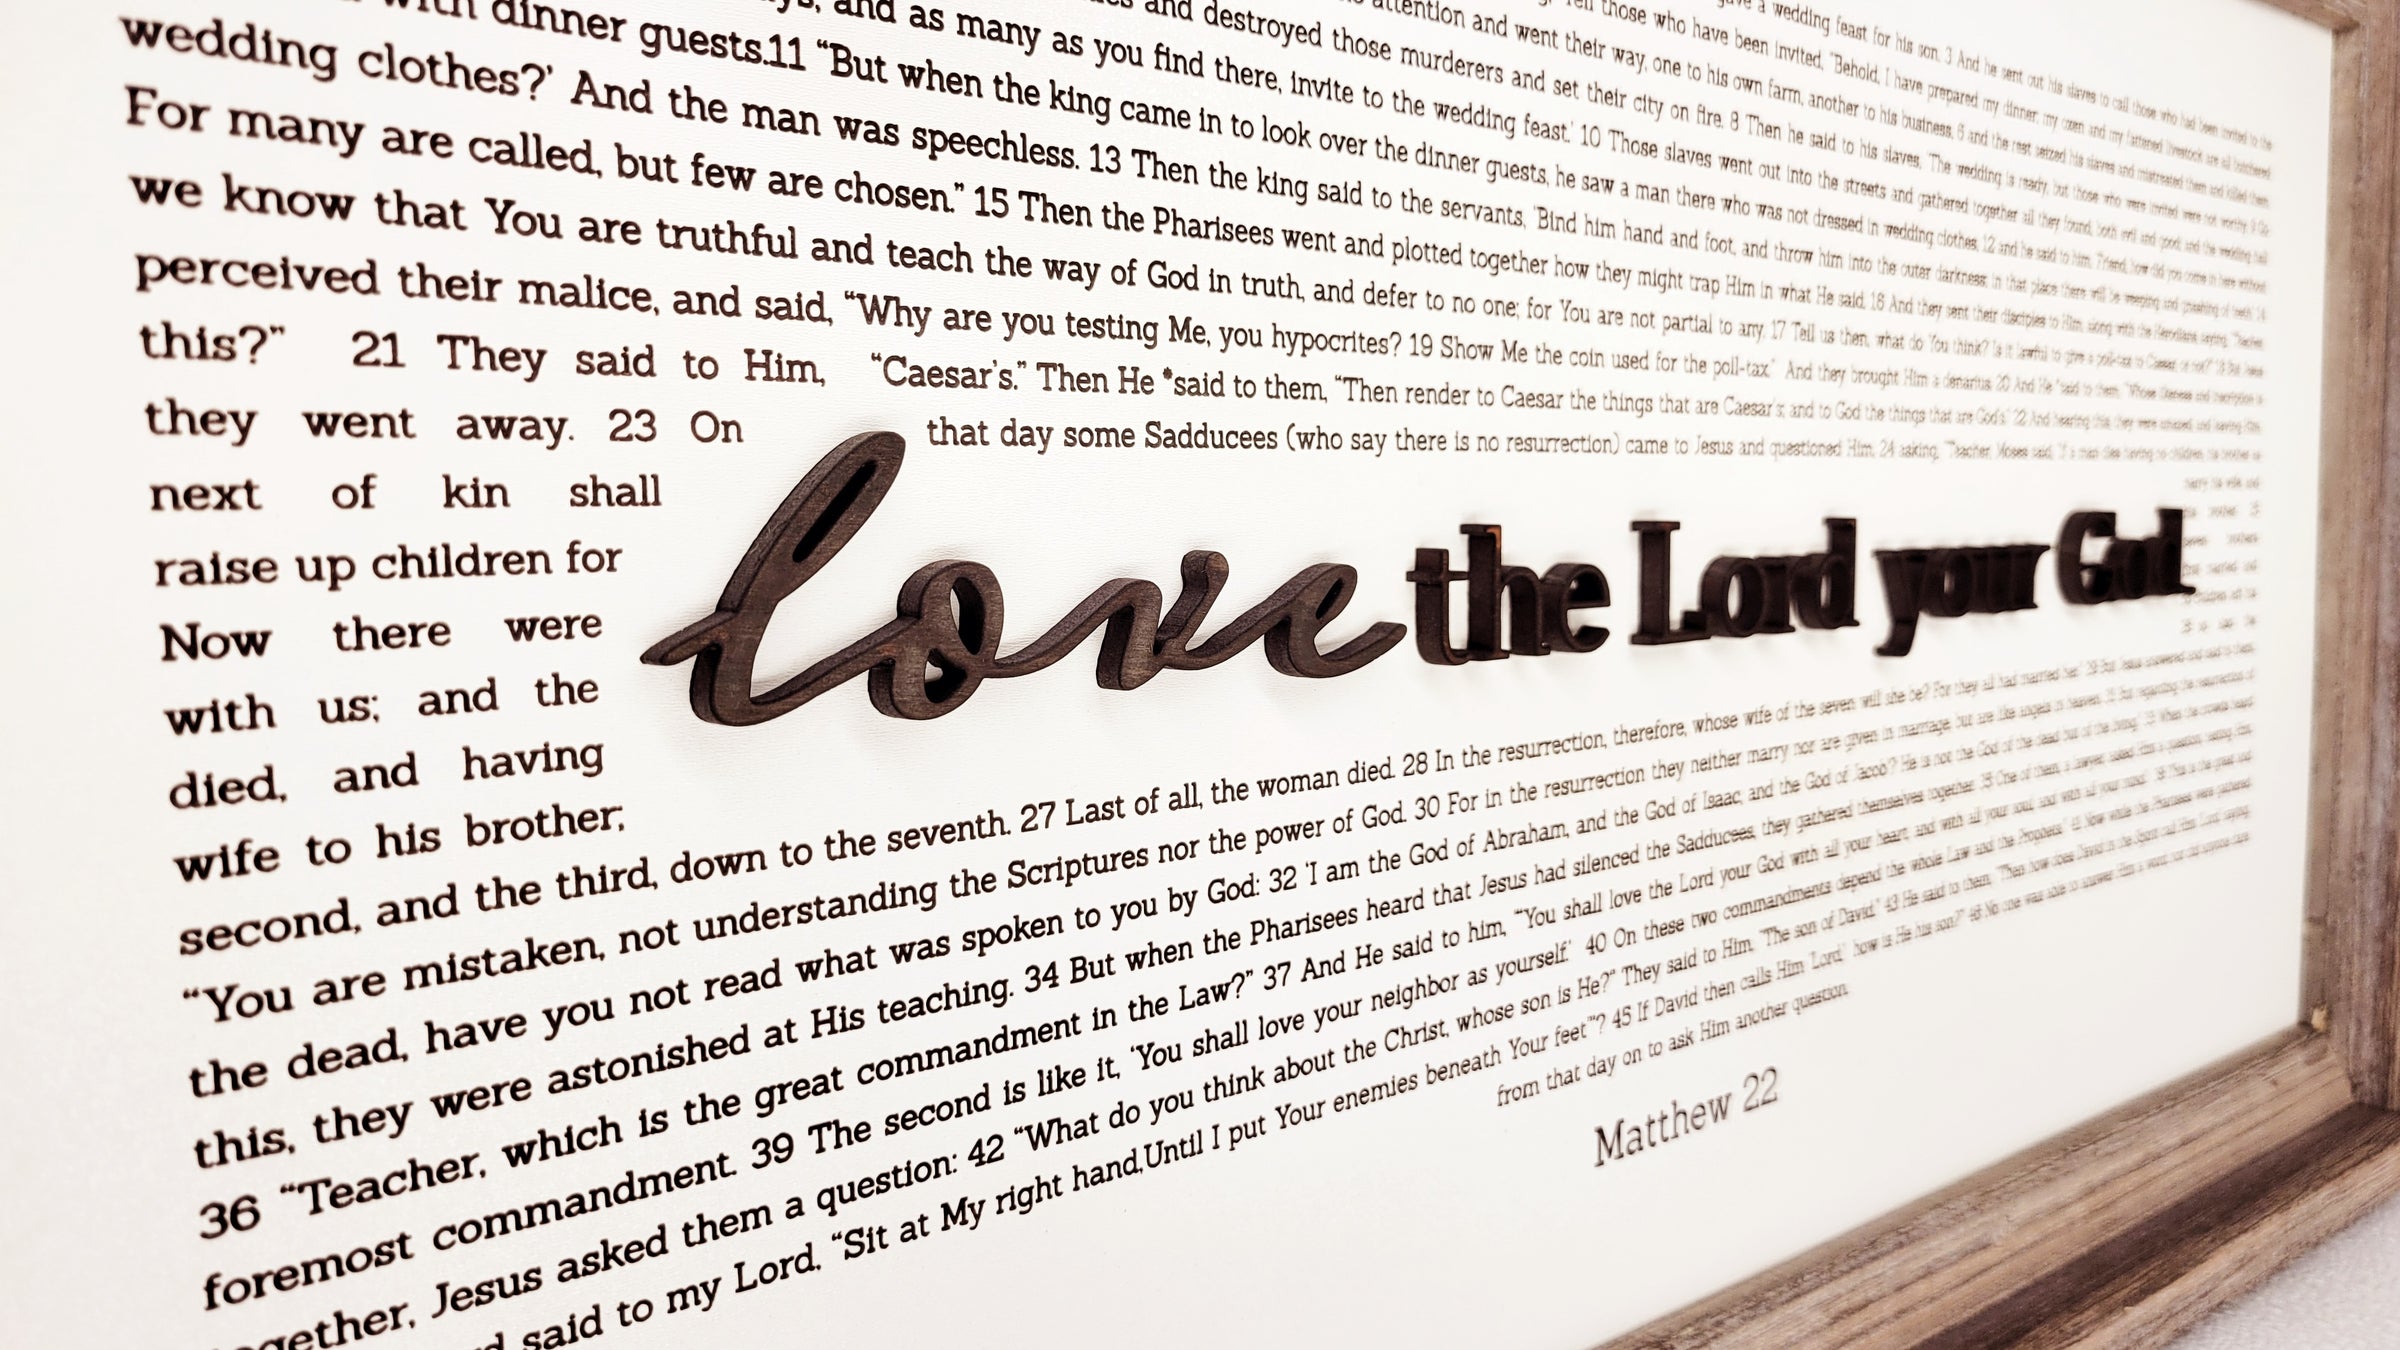 a wedding feast for his son. 3 And he sent out his slaves to call those who had been invited to the
those who have been invited, “Behold, I have prepared my dinner; my oxen and my fattened livestock are all butchered
attention and went their way, one to his own farm, another to his business, 6 and the rest seized his slaves and mistreated them and killed them.
and destroyed those murderers and set their city on fire. 8 Then he said to his slaves, ‘The wedding is ready, but those who were invited were not worthy. 9 Go
and as many as you find there, invite to the wedding feast.’ 10 Those slaves went out into the streets and gathered together all they found, both evil and good; and the wedding hall
with dinner guests.11 “But when the king came in to look over the dinner guests, he saw a man there who was not dressed in wedding clothes, 12 and he said to him, ‘Friend, how did you come in here without
wedding clothes?’ And the man was speechless. 13 Then the king said to the servants, ‘Bind him hand and foot, and throw him into the outer darkness; in that place there will be weeping and gnashing of teeth.’ 14
For many are called, but few are chosen.” 15 Then the Pharisees went and plotted together how they might trap Him in what He said. 16 And they sent their disciples to Him, along with the Herodians, saying, “Teacher,
we know that You are truthful and teach the way of God in truth, and defer to no one; for You are not partial to any. 17 Tell us then, what do You think? Is it lawful to give a poll-tax to Caesar, or not?” 18 But Jesus
perceived their malice, and said, “Why are you testing Me, you hypocrites? 19 Show Me the coin used for the poll-tax.” And they brought Him a denarius. 20 And He *said to them, “Whose likeness and inscription is
this?” 21 They said to Him, “Caesar’s.” Then He *said to them, “Then render to Caesar the things that are Caesar’s; and to God the things that are God’s.” 22 And hearing this, they were amazed, and leaving Him,
they went away. 23 On that day some Sadducees (who say there is no resurrection) came to Jesus and questioned Him, 24 asking, “Teacher, Moses said, ‘If a man dies having no children, his brother as
next of kin shall
raise up children for
Now there were
with us; and the
died, and having
wife to his brother;
love the Lord your God
second, and the third, down to the seventh. 27 Last of all, the woman died. 28 In the resurrection, therefore, whose wife of the seven will she be? For they all had married her.” 29 But Jesus answered and said to them,
“You are mistaken, not understanding the Scriptures nor the power of God. 30 For in the resurrection they neither marry nor are given in marriage, but are like angels in heaven. 31 But regarding the resurrection of
the dead, have you not read what was spoken to you by God: 32 ‘I am the God of Abraham, and the God of Isaac, and the God of Jacob’? He is not the God of the dead but of the living.” 33 When the crowds heard
this, they were astonished at His teaching. 34 But when the Pharisees heard that Jesus had silenced the Sadducees, they gathered themselves together. 35 One of them, a lawyer, asked Him a question, testing Him,
36 “Teacher, which is the great commandment in the Law?” 37 And He said to him, “‘You shall love the Lord your God with all your heart, and with all your soul, and with all your mind.’ 38 This is the great and
foremost commandment. 39 The second is like it, ‘You shall love your neighbor as yourself.’ 40 On these two commandments depend the whole Law and the Prophets.” 41 Now while the Pharisees were gathered
together, Jesus asked them a question: 42 “What do you think about the Christ, whose son is He?” They said to Him, “The son of David.” 43 He said to them, “Then how does David in the Spirit call Him ‘Lord,’ saying,
said to my Lord, “Sit at My right hand,Until I put Your enemies beneath Your feet”’? 45 If David then calls Him ‘Lord,’ how is He his son?” 46 No one was able to answer Him a word, nor did anyone dare
from that day on to ask Him another question.
Matthew 22